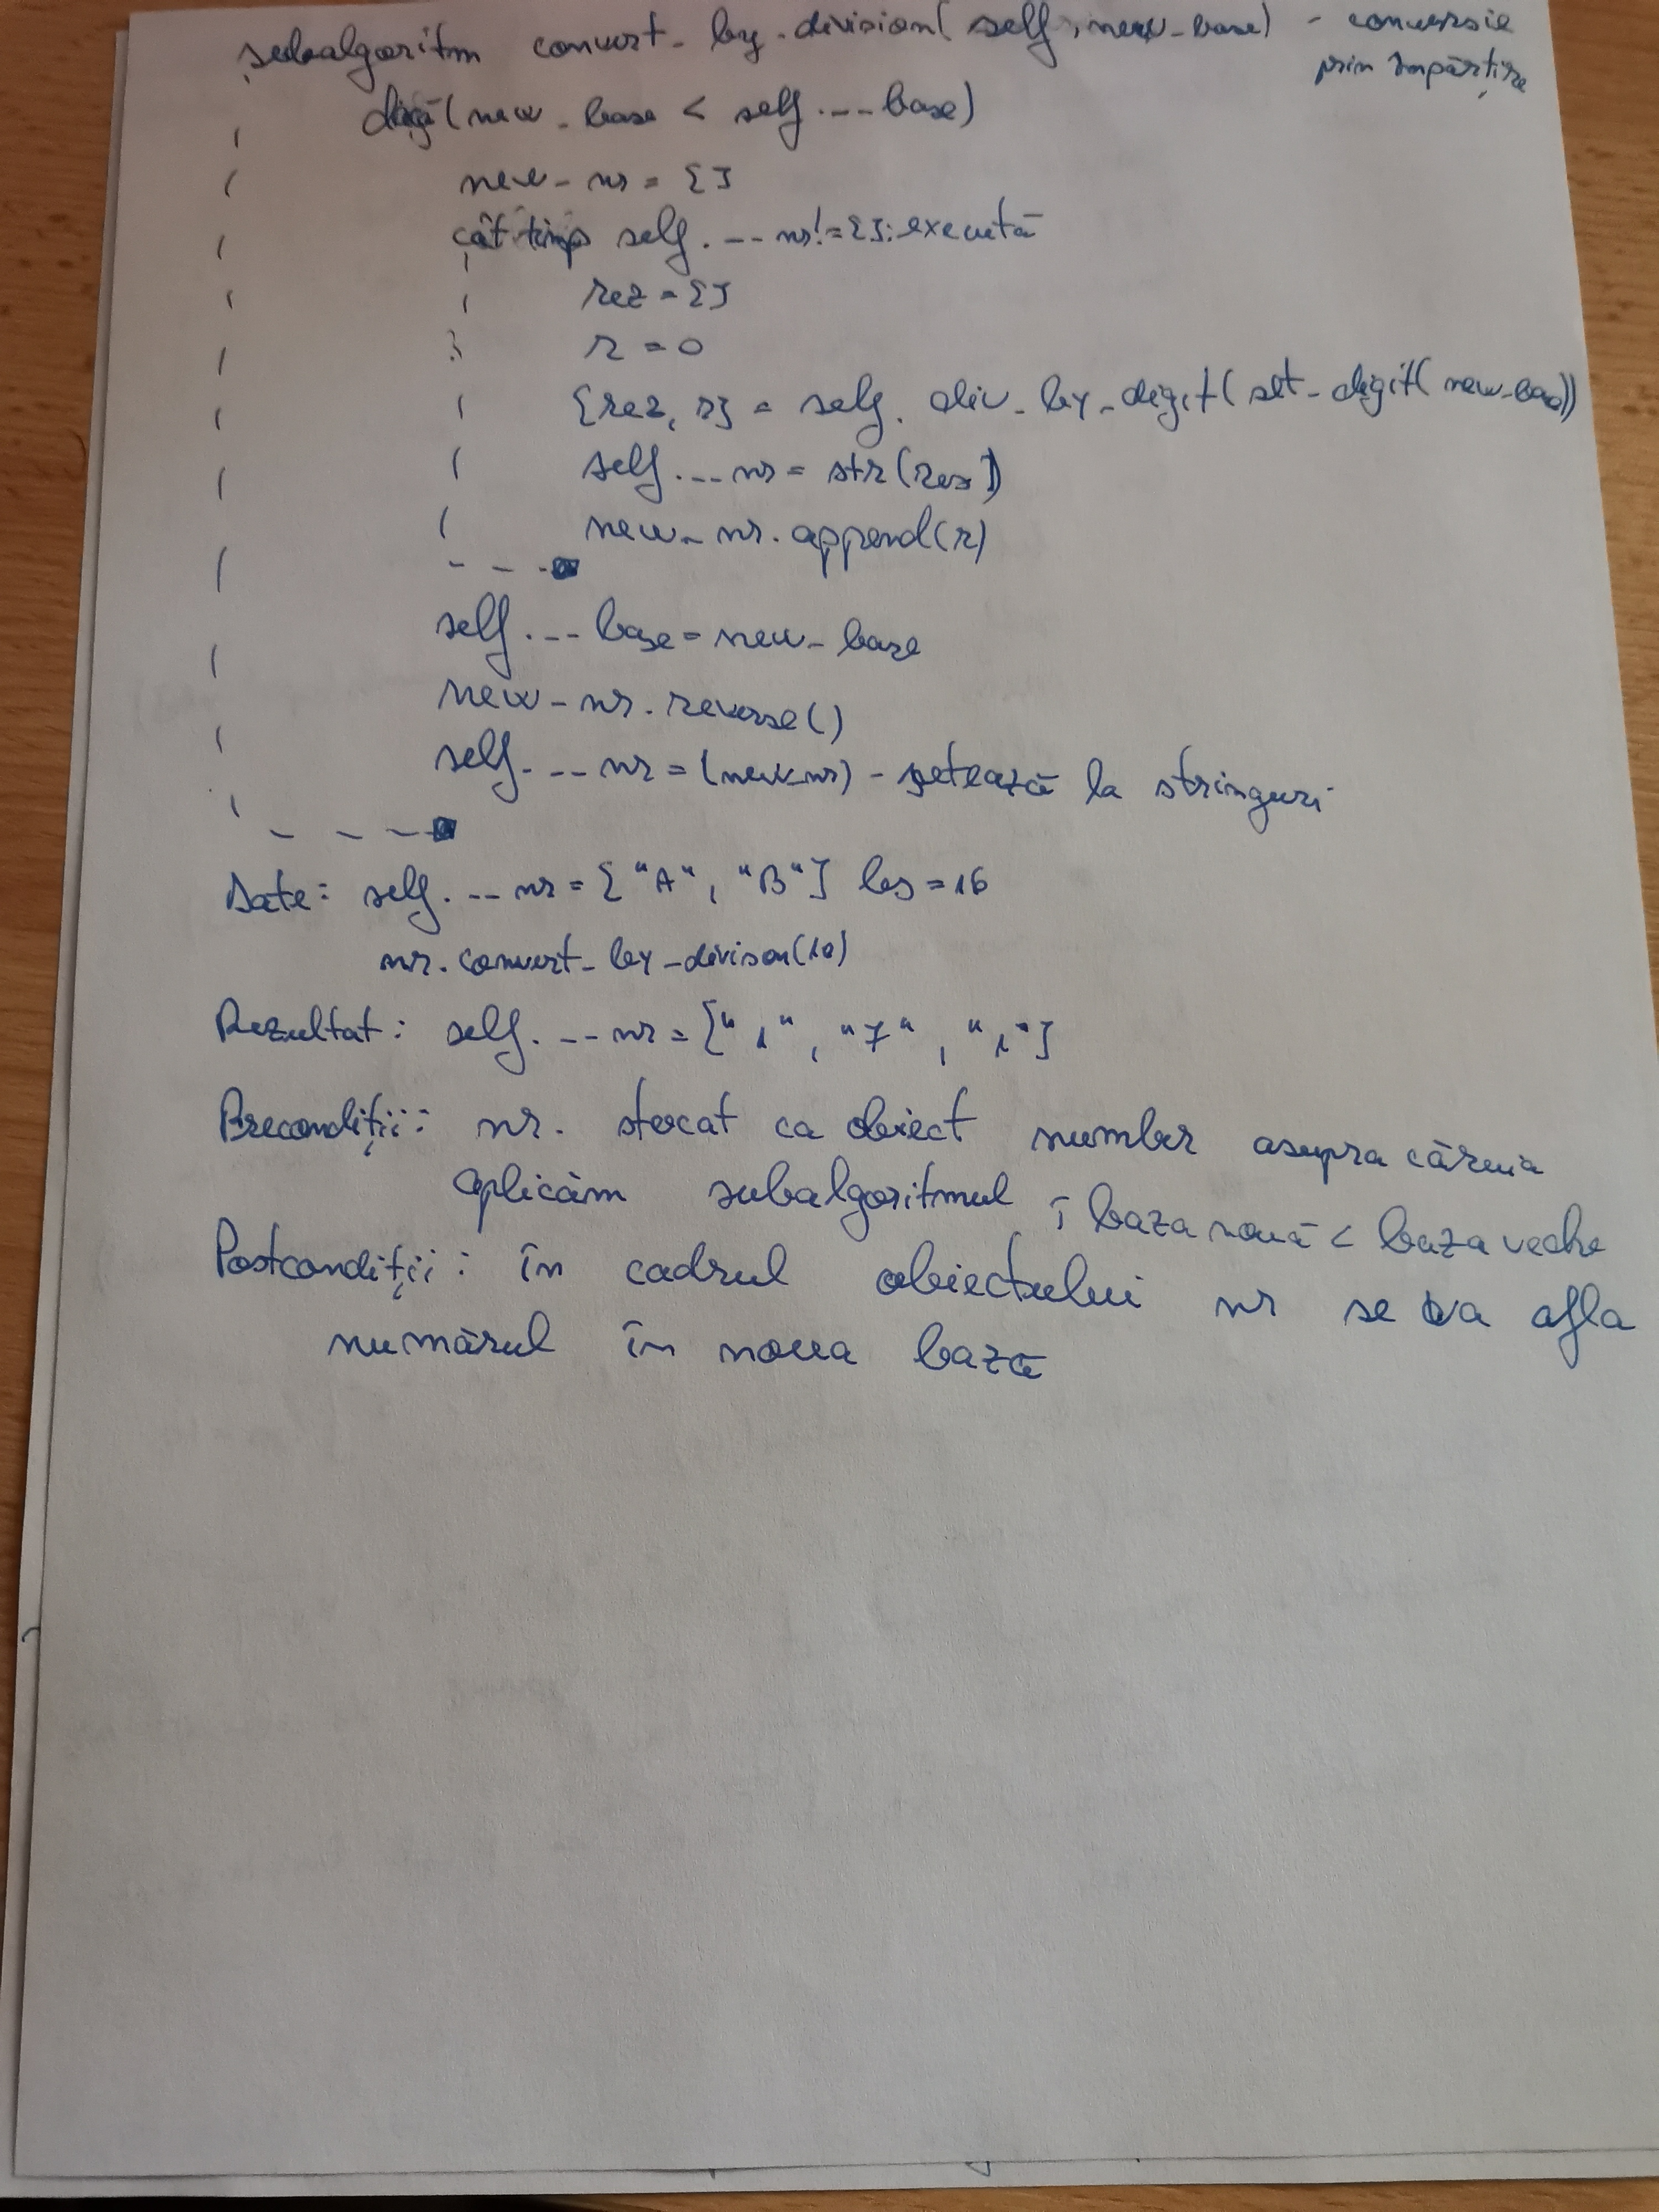 subalgoritm convert_by_division(self, new_base) - conversie
prin împărțire
dacă (new_base < self.__base)
new_nr = []
cât timp self.__nr != []: execută
rez = []
r = 0
[rez, r] = self.div_by_digit(str_digit(new_base))
self.__nr = str(rez)
new_nr.append(r)
self.__base = new_base
new_nr.reverse()
self.__nr = (new_nr) - setează la stringuri
Date: self.__nr = ["A", "B"] bs = 16
nr.convert_by_divison(10)
Rezultat: self.__nr = ["1", "7", "1"]
Precondiții: nr. stocat ca obiect number asupra căruia
aplicăm subalgoritmul ; baza nouă < baza veche
Postcondiții: în cadrul obiectului nr se va afla
numărul în noua bază